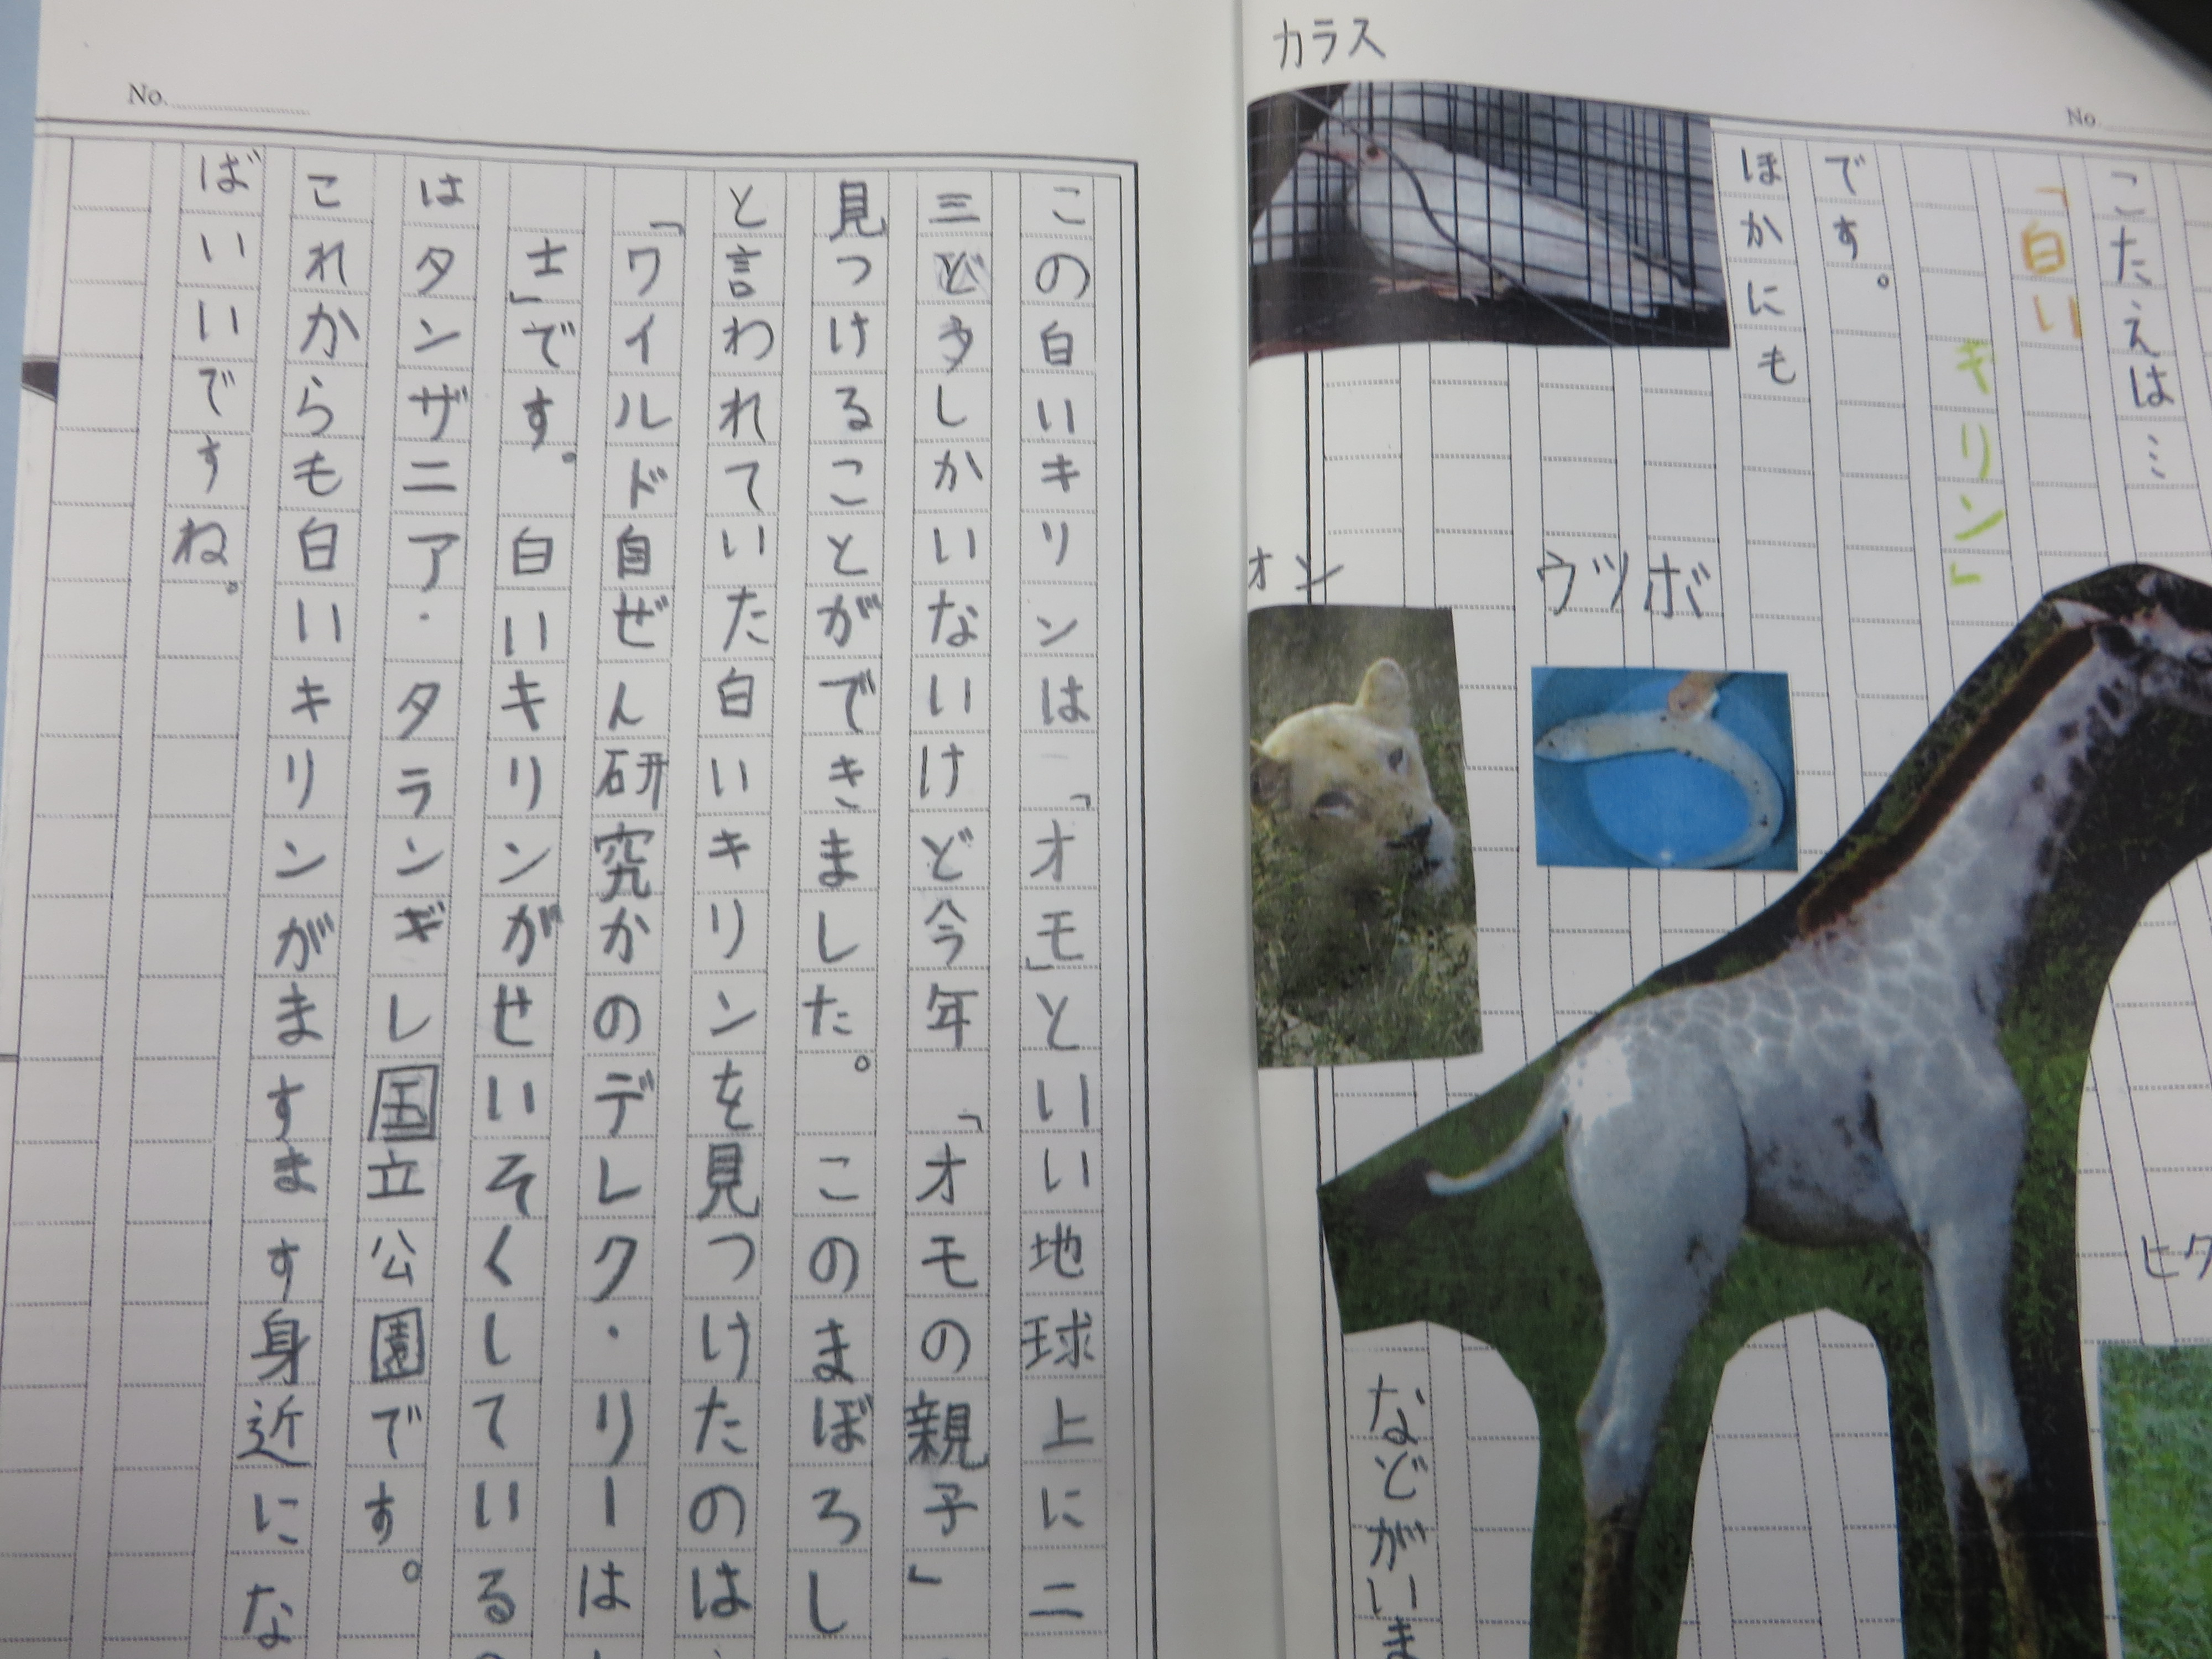 No.
こたえは…
「白い
キリン」
です。
ほかにも
カラス
ウツボ
オン
ヒク
などがいま
No.
この白いキリンは「オモ」といい地球上に二
三どうしかいないけど今年「オモの親子」
見つけることができました。このまぼろし
と言われていた白いキリンを見つけたのは
「ワイルド自ぜん研究かのデレク・リーは
士」です。白いキリンがせいそくしている
はタンザニア・タランギレ国立公園です。
これからも白いキリンがますます身近にな
ばいいですね。